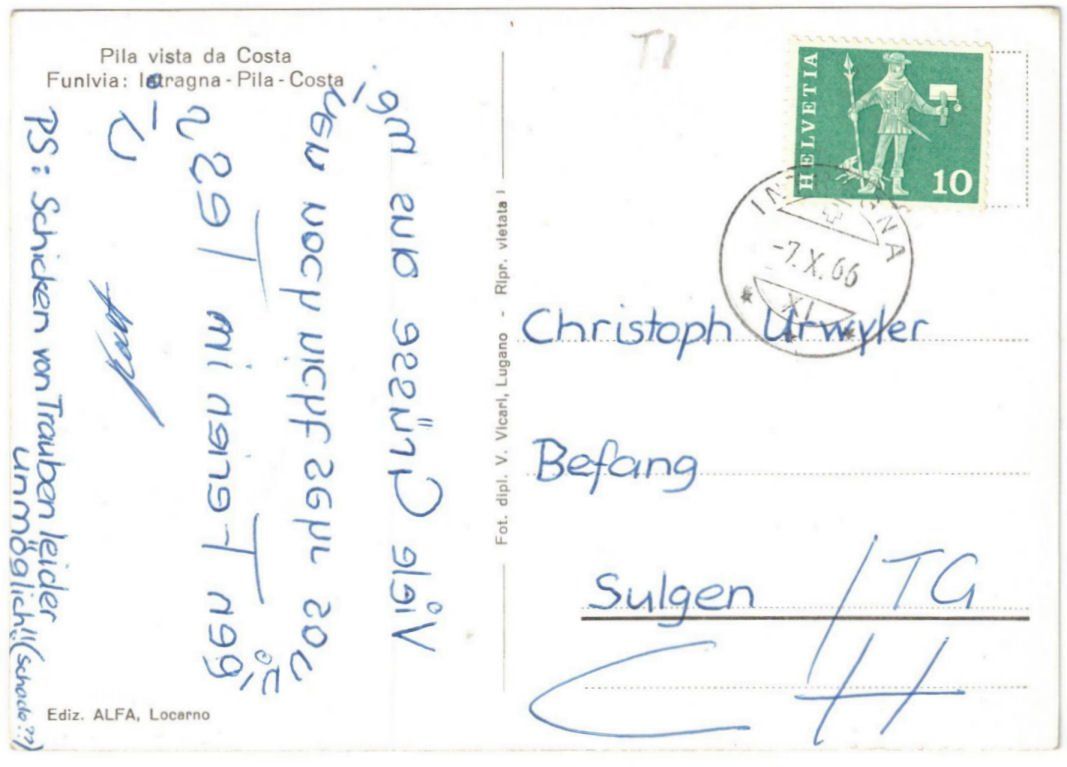 Pila vista da Costa
Funivia: Intragna - Pila - Costa
Viele Grüsse aus mei
nen noch nicht sehr son
nigen Ferien im Tess
in
PS: Schicken von Trauben leider
unmöglich!! (schade??)
Ediz. ALFA, Locarno
Fot. dipl. V. Vicari, Lugano - Ripr. vietata
TI
HELVETIA
10
INTRAGNA
-7.X.66
XI
Christoph Urwyler
Befang
Sulgen / TG
CH